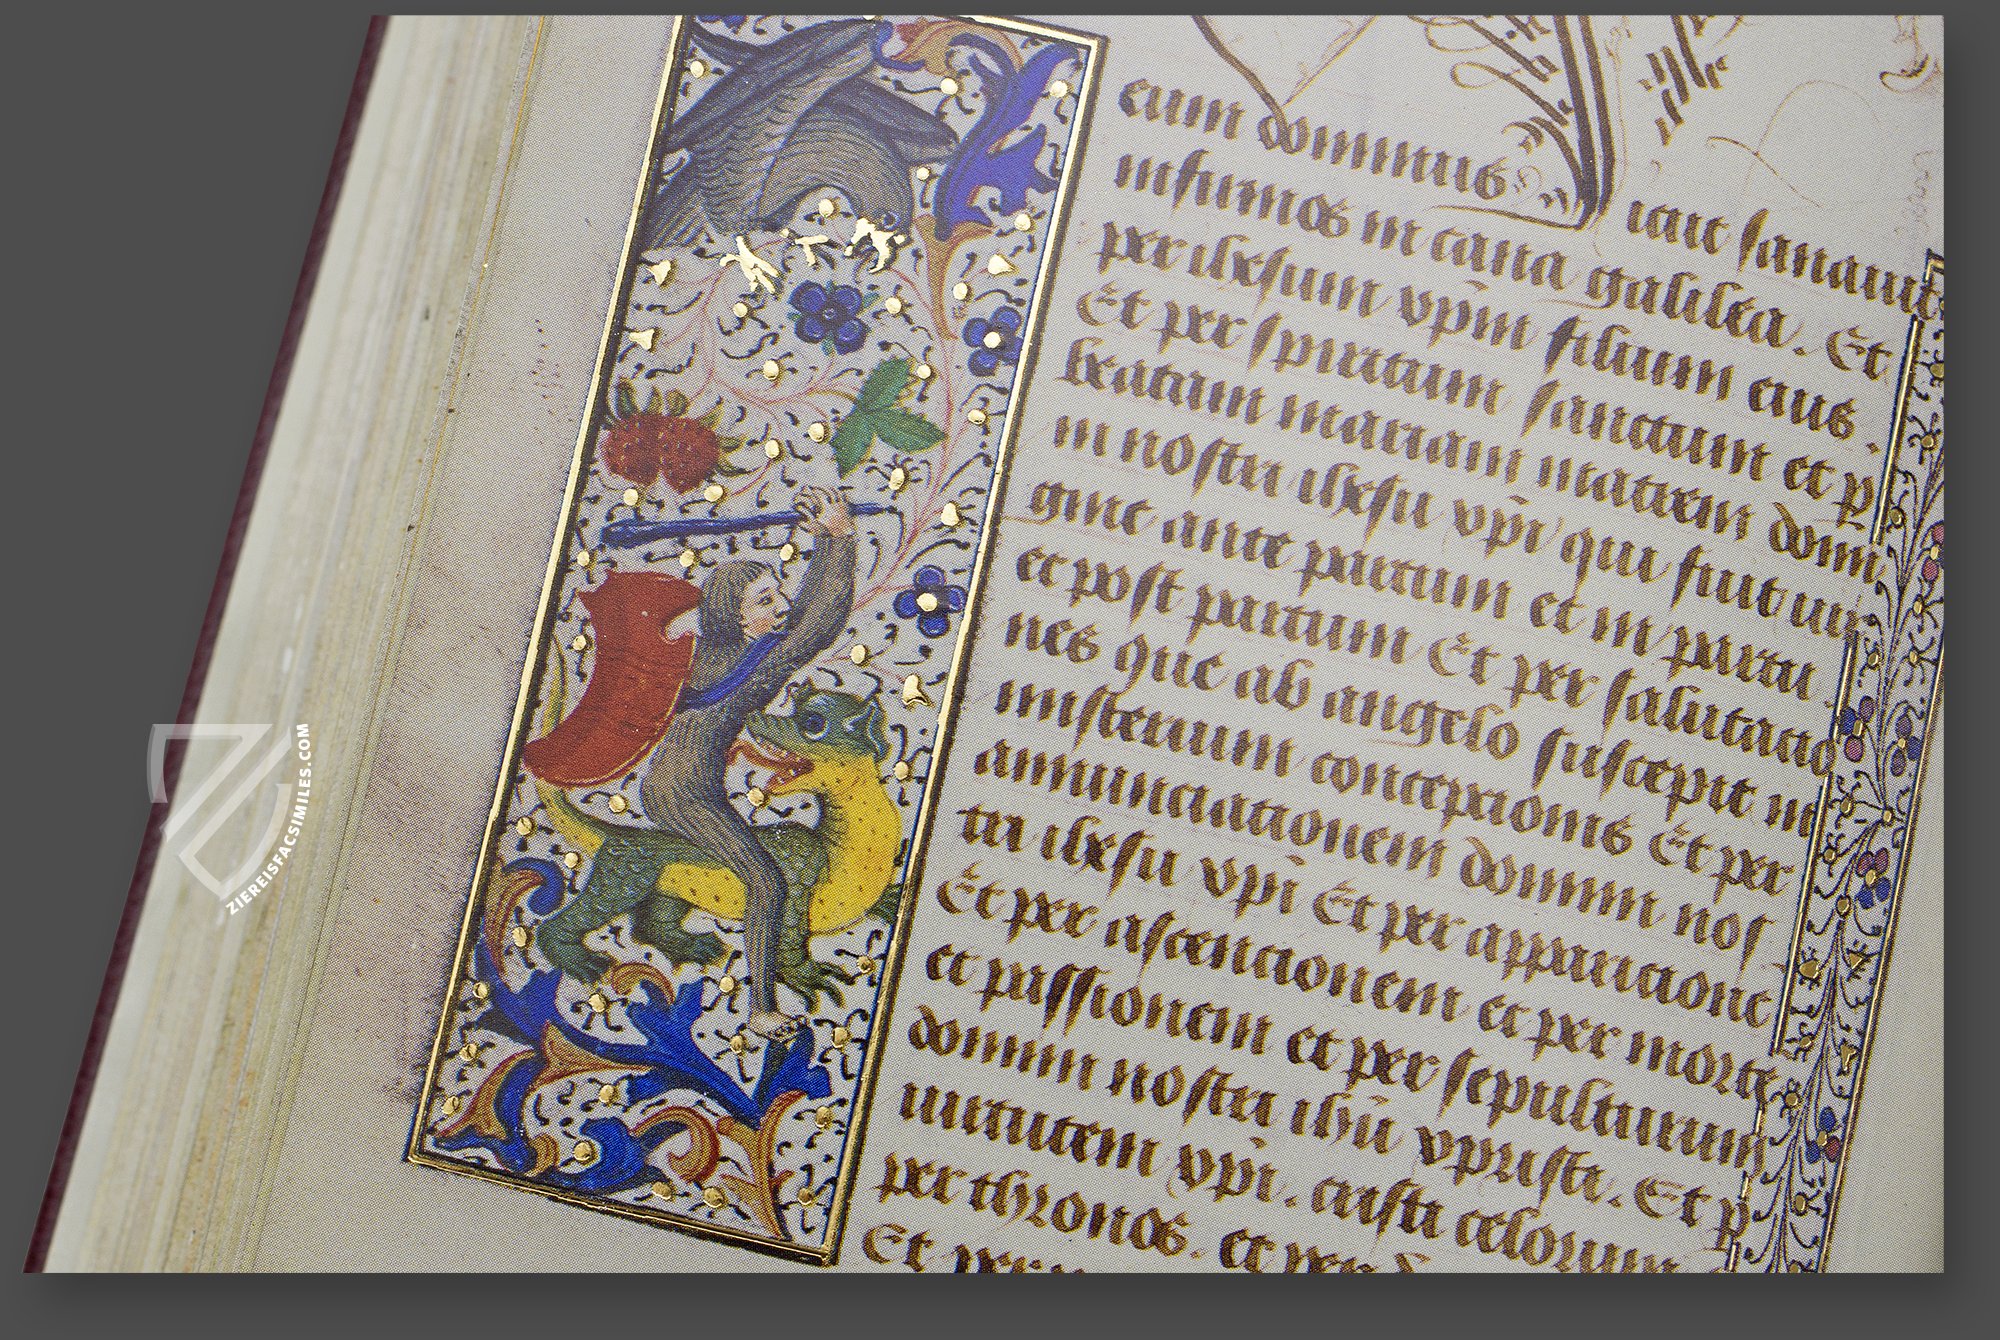 cum dominus
iait sanauit
infirmos in cana galilea. Et
per ihesum xpm filium eius.
Et per spiritum sanctum et p
beatam mariam matrem domi
ni nostri ihesu xpi qui fuit uir
gine ante partum et in partu
et post partum Et per salutatio
nes que ab angelo suscepit in
misterium conceptionis Et per
annunciationem domini nos
tri ihesu xpi Et per apparicione
Et per ascencionem et per morte
et passionem et per sepulturam
domini nostri ihu xpristi. Et p
uirtutem xpi. cristi celorum
per thronos. et per
Et
ZIEREISFACSIMILES.COM